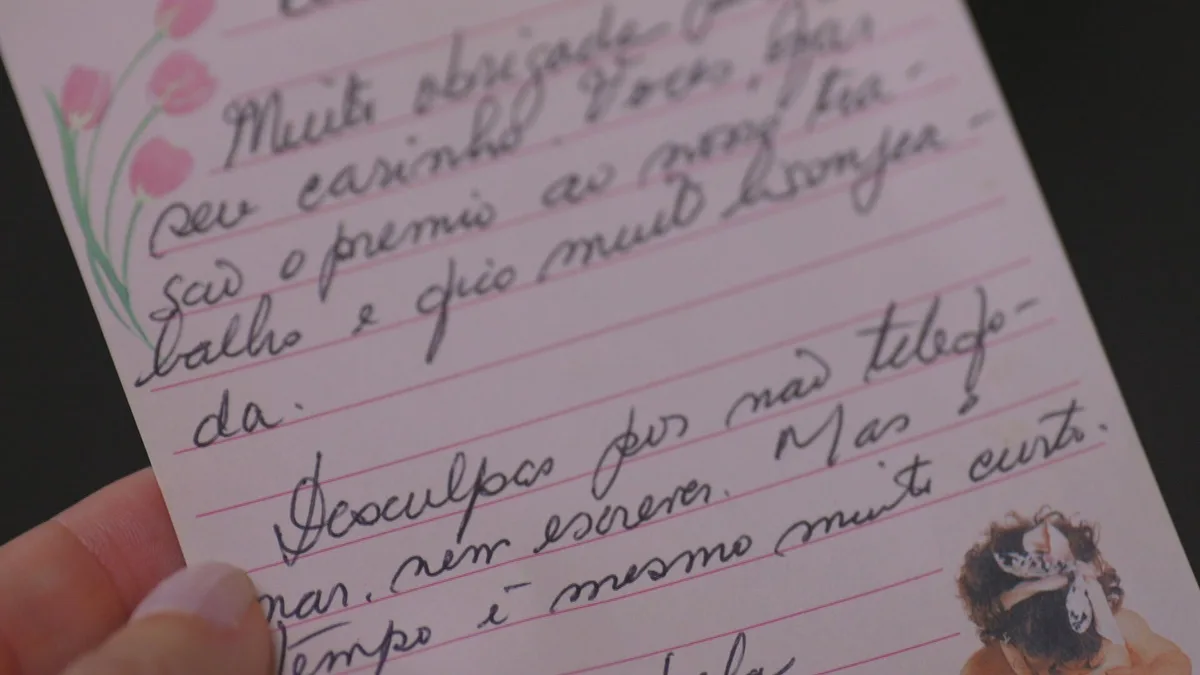 Muito obrigada
seu carinho. Voces,
são o premio ao nosso tra-
balho e fico muito lisonjea-
da.
Desculpas por não telefo-
nar, nem escrever. Mas o
tempo é mesmo muito curto.